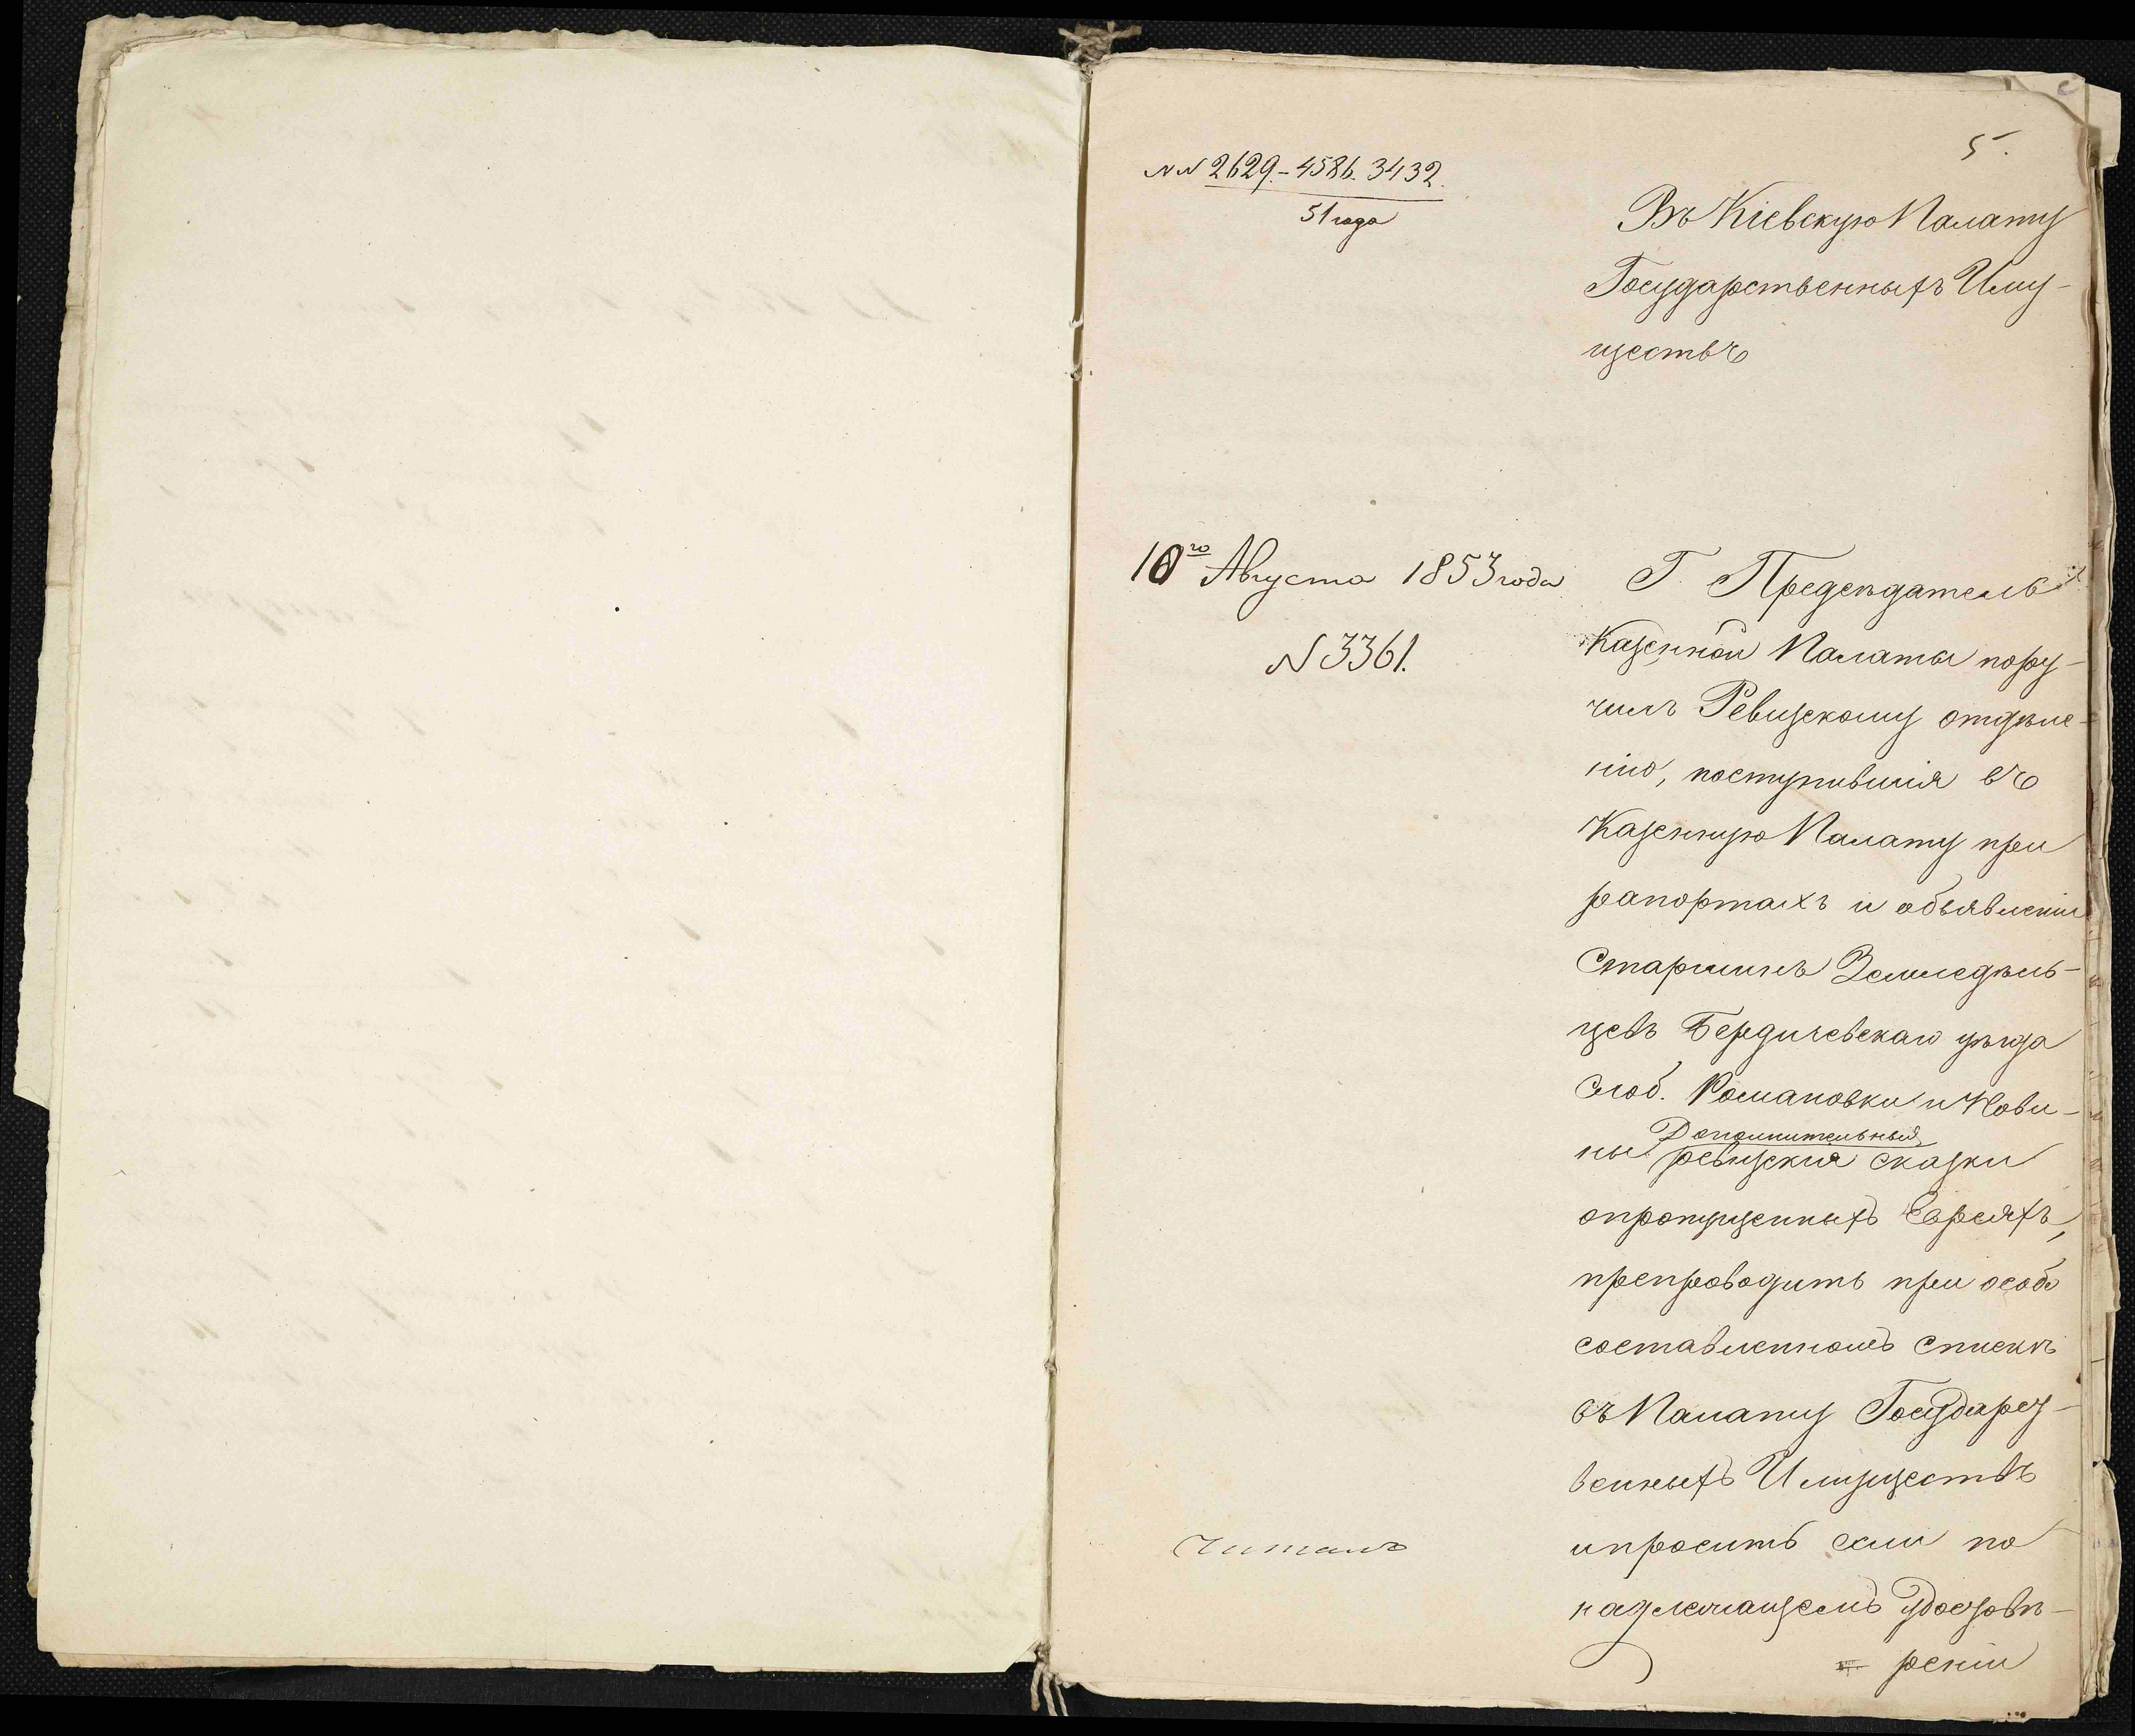 5.
NN 2629.-4586. 3432.
51 года
Въ Кіевскую Палату
Государственныхъ Иму-
ществъ
10го Августа 1853 года
N 3361.
Г. Предсѣдатель
Казенной Палаты пору-
чилъ Ревизскому отдѣле-
нію, поступившія въ
Казенную Палату при
рапортахъ и объявленіи
Старшинъ Земледѣль-
цевъ Бердичевскаго уѣзда
Слоб. Романовки и Нови-
Дополнительныя
ны ревизскія сказки
опропущенныхъ Евреяхъ,
препроводить при особо
составленномъ спискѣ
въ Палату Государст-
венныхъ Имуществъ
ипросить если по
надлежащемъ удостовѣ-
реніи
Читалъ